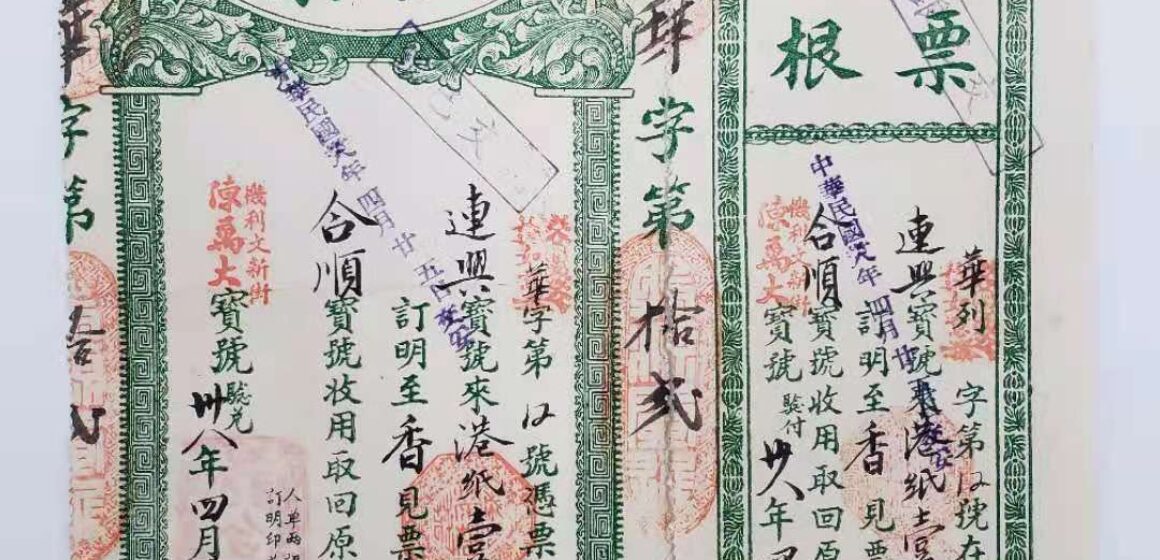 票根
華列字第〡〢號在
連興寶號來港紙壹
訂明至香見票
合順寶號收用取回原
機利文新街
陳萬大寶號驗付
卅八年四
中華民國卅八年四月廿
字第拾弍
華字第〡〢號憑票
連興寶號來港紙壹
訂明至香見票
合順寶號收用取回原
機利文新街
陳萬大寶號驗兌
卅八年四月
人單兩
訂明印
中華民國卅八年四月廿五日
華字第拾弍